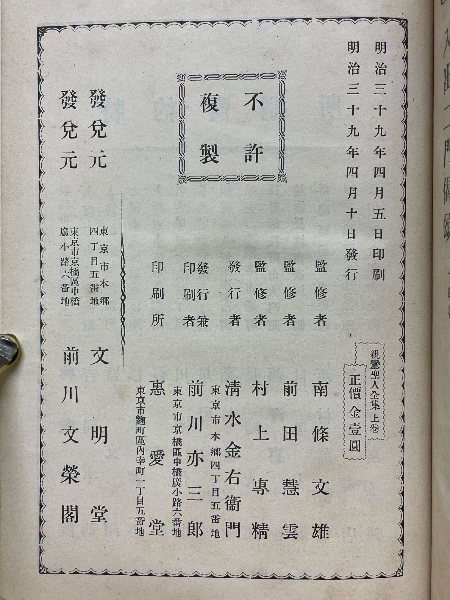 明治三十九年四月五日印刷
明治三十九年四月十日發行
不許
複製
親鸞聖人全集上卷
正價金壹圓
監修者 南條文雄
監修者 前田慧雲
監修者 村上專精
東京市本郷四丁目五番地
發行者 清水金右衞門
東京市京橋區中橋廣小路六番地
發行兼印刷者 前川亦三郎
東京市麹町區內幸町一丁目五番地
印刷所 惠愛堂
發兌元 東京市本郷四丁目五番地 文明堂
發兌元 東京市京橋區中橋廣小路六番地 前川文榮閣